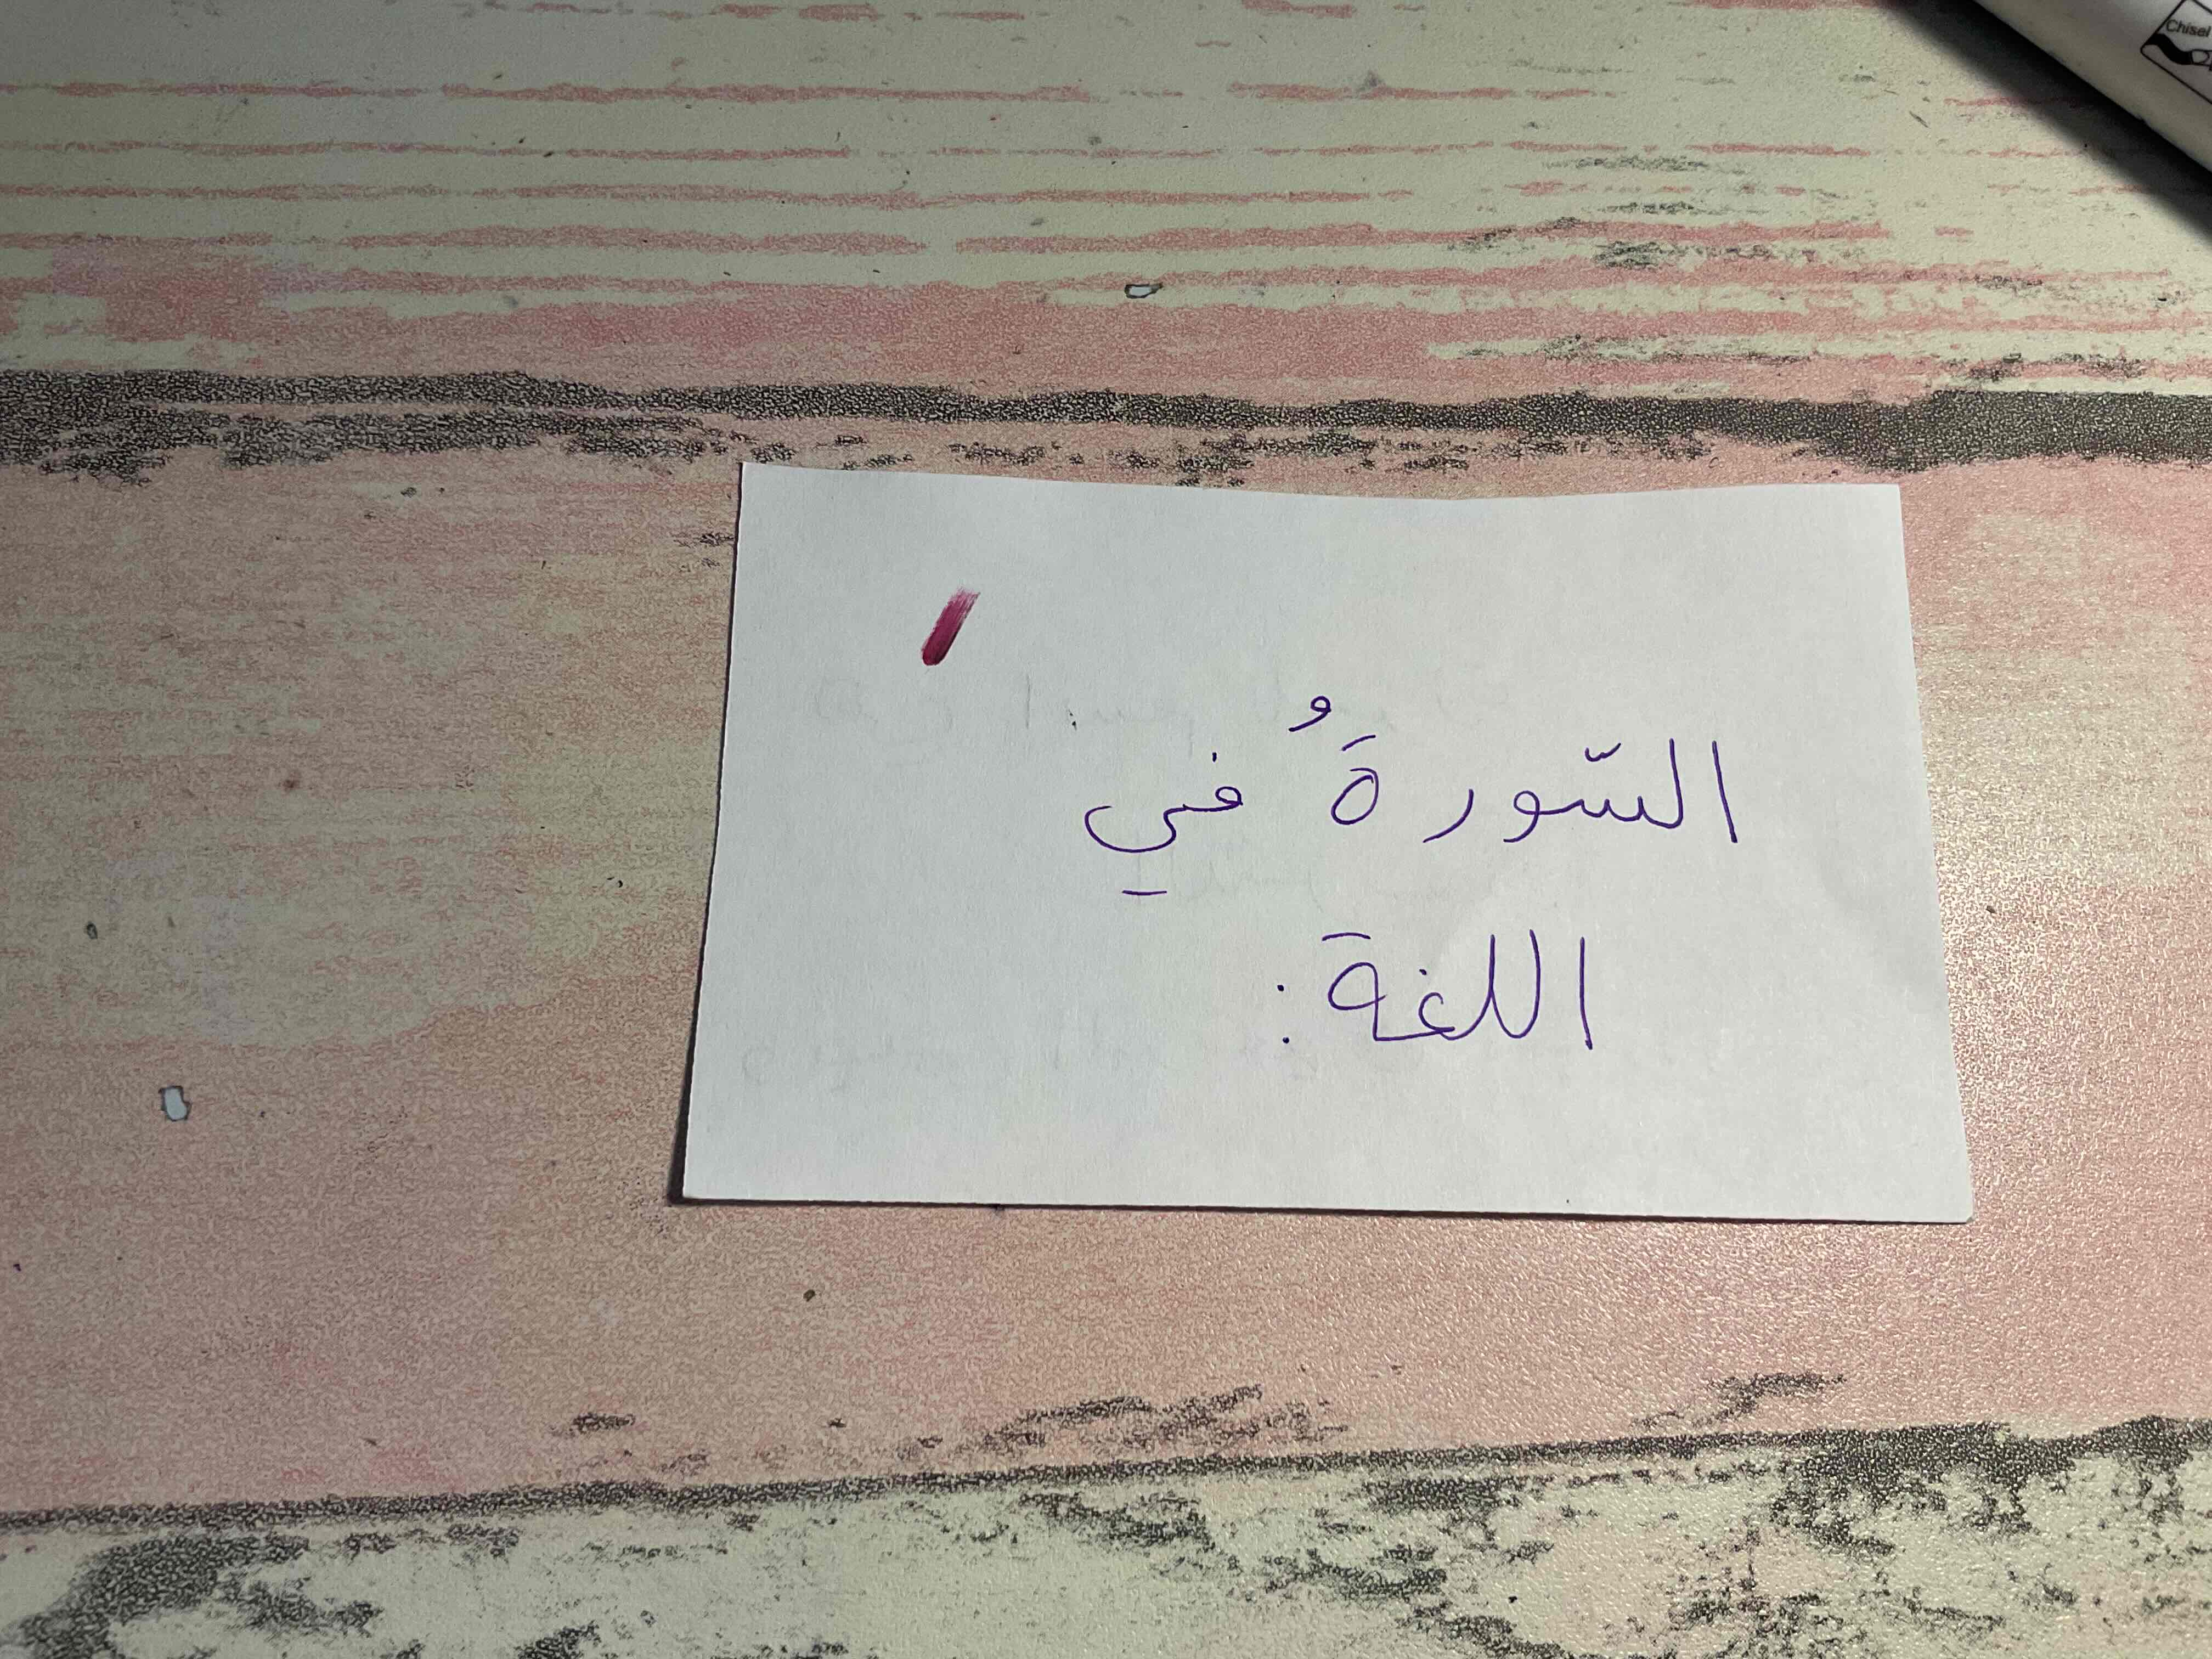 Chisel
السّورةُ في
اللغة: